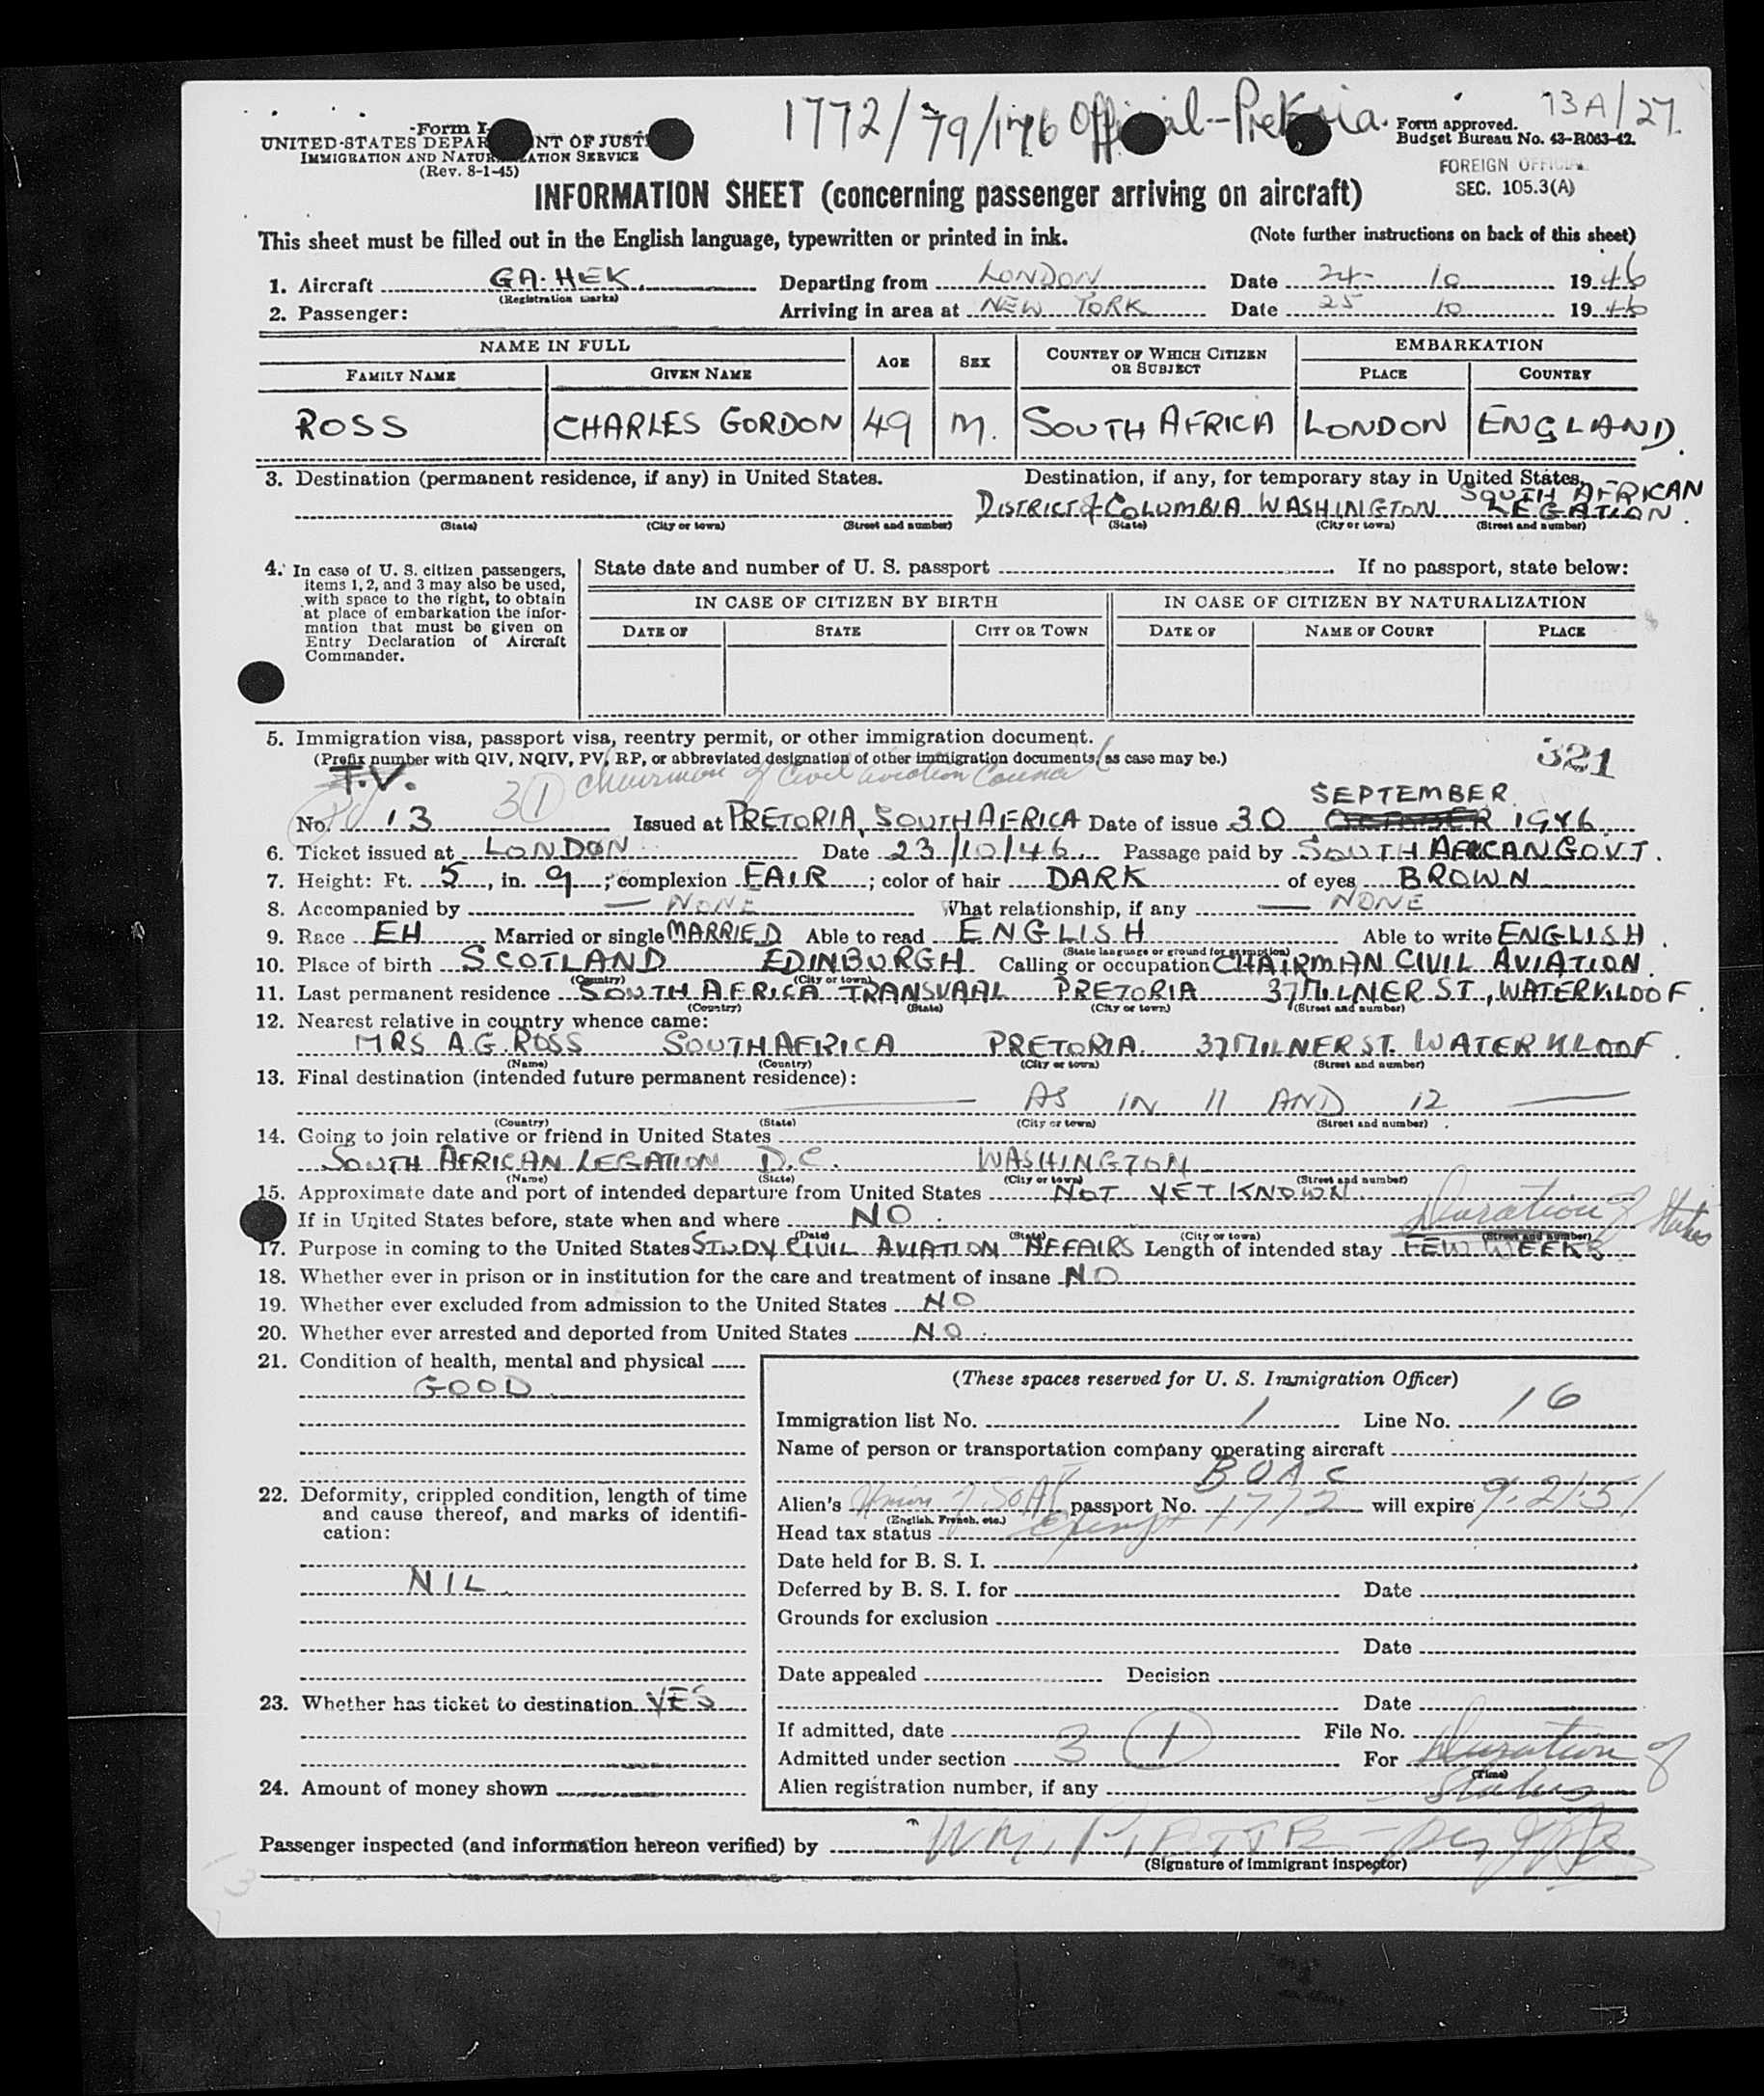 1772/79/176 Official - Pretoria.
73A/27.
Form I-
UNITED STATES DEPAR NT OF JUST
IMMIGRATION AND NATUR ATION SERVICE
(Rev. 8-1-45)
Form approved.
Budget Bureau No. 43-R063-42.
FOREIGN OFFICIAL
SEC. 105.3(A)
INFORMATION SHEET (concerning passenger arriving on aircraft)
This sheet must be filled out in the English language, typewritten or printed in ink. (Note further instructions on back of this sheet)
1. Aircraft GA-HEK. Departing from LONDON Date 24 - 10 1946
(Registration marks)
2. Passenger: Arriving in area at NEW YORK Date 25 10 1946
NAME IN FULL AGE SEX COUNTRY OF WHICH CITIZEN OR SUBJECT EMBARKATION
FAMILY NAME GIVEN NAME PLACE COUNTRY
ROSS CHARLES GORDON 49 M. SOUTH AFRICA LONDON ENGLAND.
3. Destination (permanent residence, if any) in United States. Destination, if any, for temporary stay in United States.
DISTRICT of COLUMBIA WASHINGTON SOUTH AFRICAN LEGATION.
(State) (City or town) (Street and number) (State) (City or town) (Street and number)
4. In case of U. S. citizen passengers, items 1, 2, and 3 may also be used, with space to the right, to obtain at place of embarkation the information that must be given on Entry Declaration of Aircraft Commander.
State date and number of U. S. passport If no passport, state below:
IN CASE OF CITIZEN BY BIRTH IN CASE OF CITIZEN BY NATURALIZATION
DATE OF STATE CITY OR TOWN DATE OF NAME OF COURT PLACE
5. Immigration visa, passport visa, reentry permit, or other immigration document.
(Prefix number with QIV, NQIV, PV, RP, or abbreviated designation of other immigration documents, as case may be.)
321
T.V. 3(1) Chairman of Civil Aviation Council
SEPTEMBER
No. 13 Issued at PRETORIA, SOUTH AFRICA Date of issue 30 OCTOBER 1946
6. Ticket issued at LONDON Date 23/10/46 Passage paid by SOUTH AFRICAN GOVT.
7. Height: Ft. 5, in. 9; complexion FAIR; color of hair DARK of eyes BROWN
8. Accompanied by — NONE What relationship, if any — NONE
9. Race EH Married or single MARRIED Able to read ENGLISH Able to write ENGLISH.
(State language or ground for exemption)
10. Place of birth SCOTLAND EDINBURGH Calling or occupation CHAIRMAN CIVIL AVIATION.
(Country) (City or town)
11. Last permanent residence SOUTH AFRICA TRANSVAAL PRETORIA 37 MILNER ST., WATERKLOOF.
(Country) (State) (City or town) (Street and number)
12. Nearest relative in country whence came:
MRS A.G. ROSS SOUTH AFRICA PRETORIA. 37 MILNER ST. WATERKLOOF.
(Name) (Country) (City or town) (Street and number)
13. Final destination (intended future permanent residence):
— AS IN 11 AND 12 —
(Country) (State) (City or town) (Street and number)
14. Going to join relative or friend in United States
SOUTH AFRICAN LEGATION D.C. WASHINGTON
(Name) (State) (City or town) (Street and number)
15. Approximate date and port of intended departure from United States NOT YET KNOWN
If in United States before, state when and where NO. Duration of Status
(Date) (State) (City or town) (Street and number)
17. Purpose in coming to the United States STUDY CIVIL AVIATION AFFAIRS Length of intended stay FEW WEEKS
18. Whether ever in prison or in institution for the care and treatment of insane NO
19. Whether ever excluded from admission to the United States NO
20. Whether ever arrested and deported from United States NO.
21. Condition of health, mental and physical
GOOD.
22. Deformity, crippled condition, length of time and cause thereof, and marks of identification:
NIL.
23. Whether has ticket to destination YES
24. Amount of money shown
(These spaces reserved for U. S. Immigration Officer)
Immigration list No. 1 Line No. 16
Name of person or transportation company operating aircraft
BOAC
Alien's Union of SOAF passport No. 1772 will expire 9-21-51
(English, French, etc.)
Head tax status Exempt
Date held for B. S. I.
Deferred by B. S. I. for Date
Grounds for exclusion
Date
Date appealed Decision
Date
If admitted, date File No.
Admitted under section 3 (1) For Duration of Status
(Time)
Alien registration number, if any
Passenger inspected (and information hereon verified) by
(Signature of immigrant inspector)